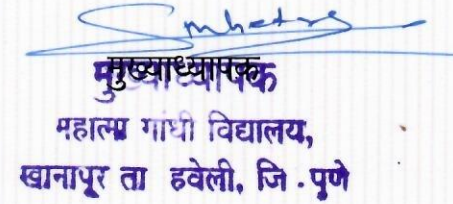 मुख्याध्यापक
मुख्याध्यापक
महात्मा गांधी विद्यालय,
खानापूर ता हवेली, जि . पुणे